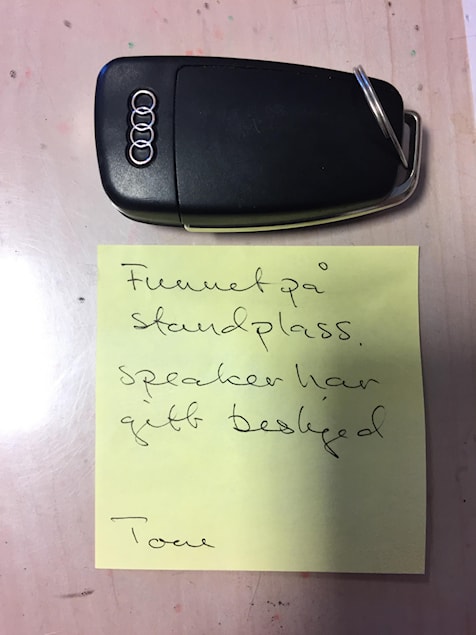 Funnet på
standplass.
speaker har
gitt beskjed
Tone